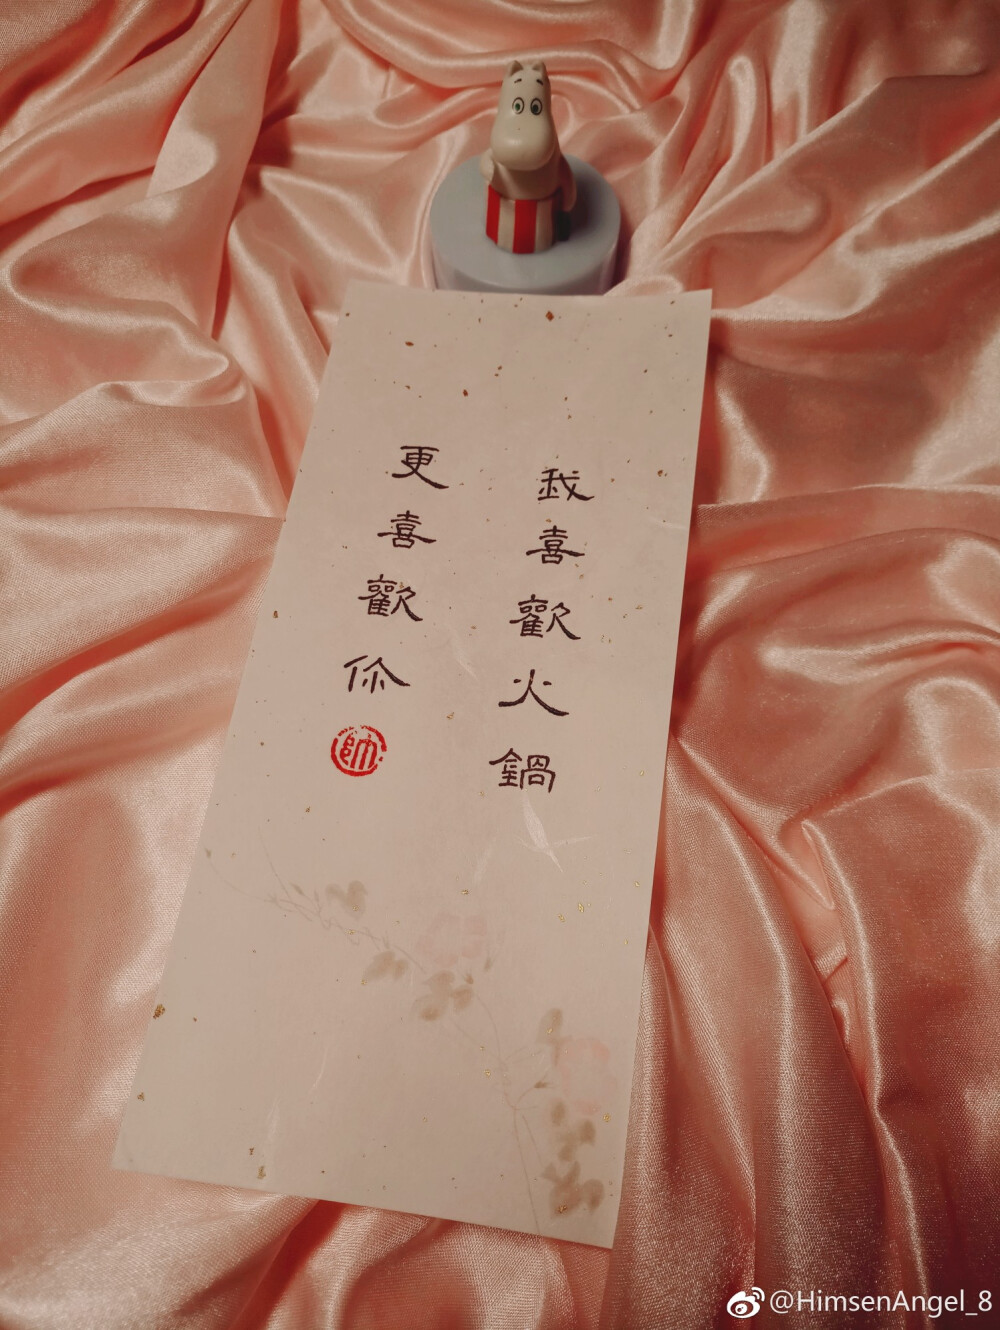 我喜歡火鍋
更喜歡你
帥
@HimsenAngel_8